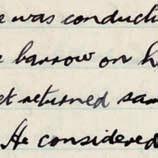 was conducti
barrow on h
et returned sam
He considered